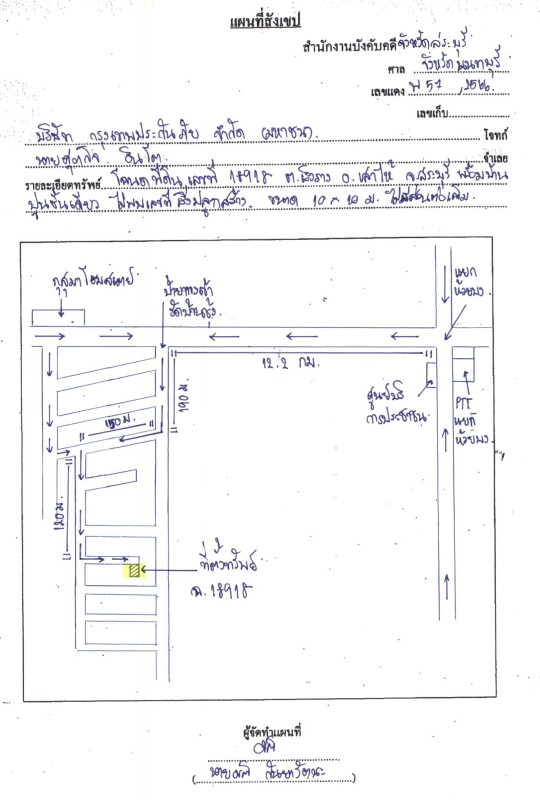 แผนที่สังเขป
สำนักงานบังคับคดีจังหวัดสระบุรี
ศาล จังหวัดนนทบุรี
เลขแดง ผบ 57 /2566
เลขเก็บ
บริษัท กรุงเทพประกันภัย จำกัด (มหาชน) โจทก์
นาย อินโต จำเลย
รายละเอียดทรัพย์ โฉนดที่ดินเลขที่ 18918 ต.เริงราง อ.เสาไห้ จ.สระบุรี พร้อมบ้าน
ปูนชั้นเดียว ไม่พบเลขที่ สิ่งปลูกสร้าง ขนาด 10 x 10 ม. ไม่มีส่วนต่อเติม
กุสุมาโฮมสเตย์
ป้ายทางเข้า
วัดบ้านยาง
แยก
ห้วยบง
12.2 กม.
190 ม.
150 ม.
120 ม.
ศูนย์บริ
การประชาชน
PTT
แยก
ห้วยบง
ที่ตั้งทรัพย์
ฉ. 18918
ผู้จัดทำแผนที่